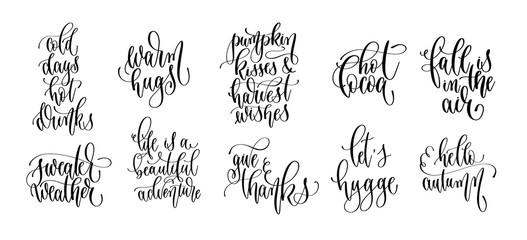 cold
days
hot
drinks
warm
hugs
pumpkin
kisses &
harvest
wishes
hot
cocoa
fall is
in the
air
sweater
weather
life is a
beautiful
adventure
give
thanks
let's
hygge
hello
autumn